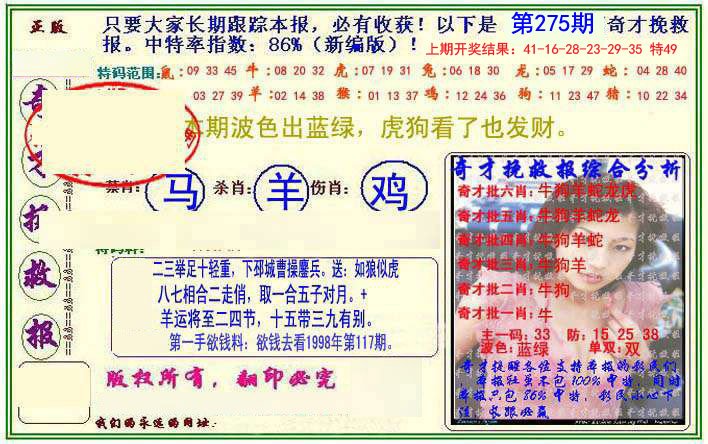 正版
只要大家长期跟踪本报，必有收获！以下是 第275期 奇才挽救
报。中特率指数：86%（新编版）！ 上期开奖结果：41-16-28-23-29-35 特49
特码范围：鼠：09 33 45 牛：08 20 32 虎：07 19 31 兔：06 18 30 龙：05 17 29 蛇：04 28 40
03 27 39 羊：02 14 38 猴：01 13 37 鸡：12 24 36 狗：11 23 47 猪：10 22 34
本期波色出蓝绿，虎狗看了也发财。
禁肖：马 杀肖：羊 伤肖：鸡
特码料：
二三举足十轻重，下邳城曹操鏖兵。送：如狼似虎
八七相合二走俏，取一合五子对月。+
羊运将至二四节，十五带三九有别。
第一手欲钱料：欲钱去看1998年第117期。
版权所有，翻印必究
我们的永远的网址：
奇
救
报
奇才挽救报综合分析
奇才批六肖：牛狗羊蛇龙虎
奇才批五肖：牛狗羊蛇龙
奇才批四肖：牛狗羊蛇
奇才批三肖：牛狗羊
奇才批二肖：牛狗
奇才批一肖：牛
主一码：33 防：15 25 38
波色：蓝绿 单双：双
奇才提醒各位支持本报的彩民们
，本报虽不包100%中特，同时
本报只包86%中特，彩民小心下
注，长跟必赢